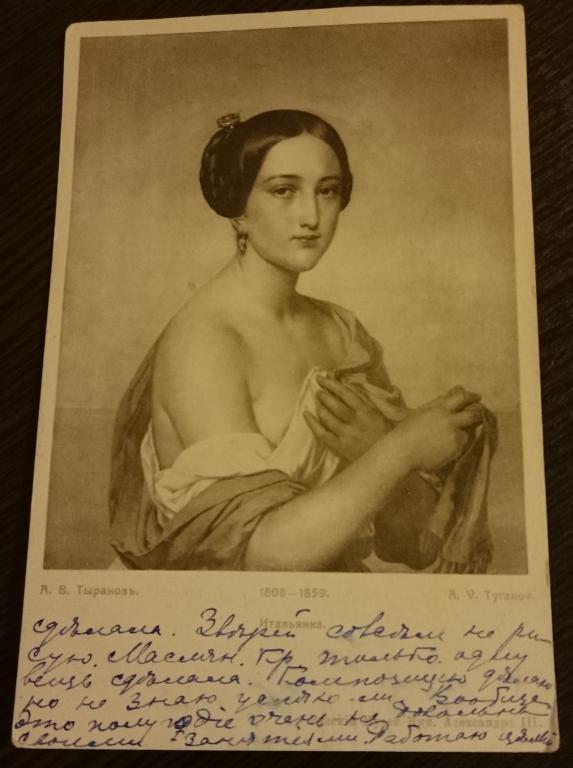 А. В. Тырановъ. 1808—1859. A. V. Tyranov.
Итальянка.
сдѣлала. Звѣрей совсѣм не ри
сую. Маслян. кр. только одну
вещь сдѣлала. Композицию дѣлаю
но не знаю успѣю ли. Вообще
Это полугодіе очень не
своими занятіями. Работаю
Александра III.